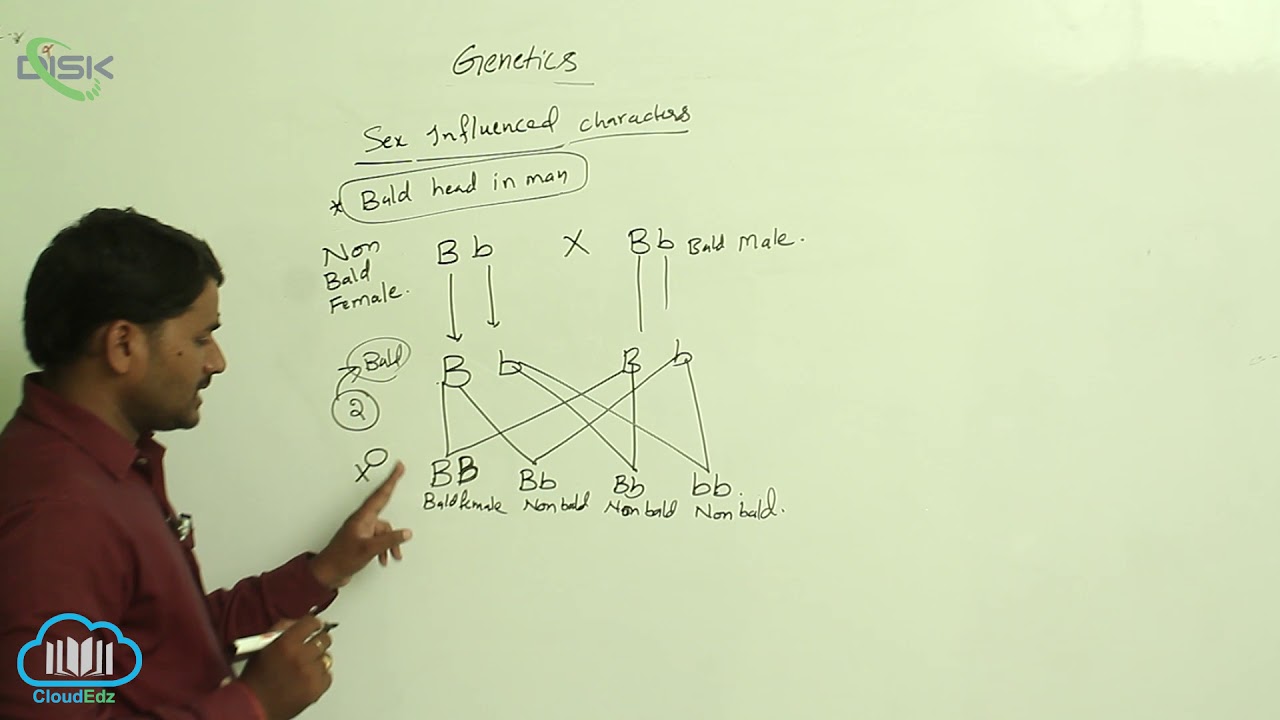 DISK
Genetics
Sex Influenced characters
* Bald head in man
Non Bald Female.
B b X B b Bald Male.
Bald
B b B b
2
BB Bb Bb bb.
Bald female Non bald Non bald Non bald.
CloudEdz